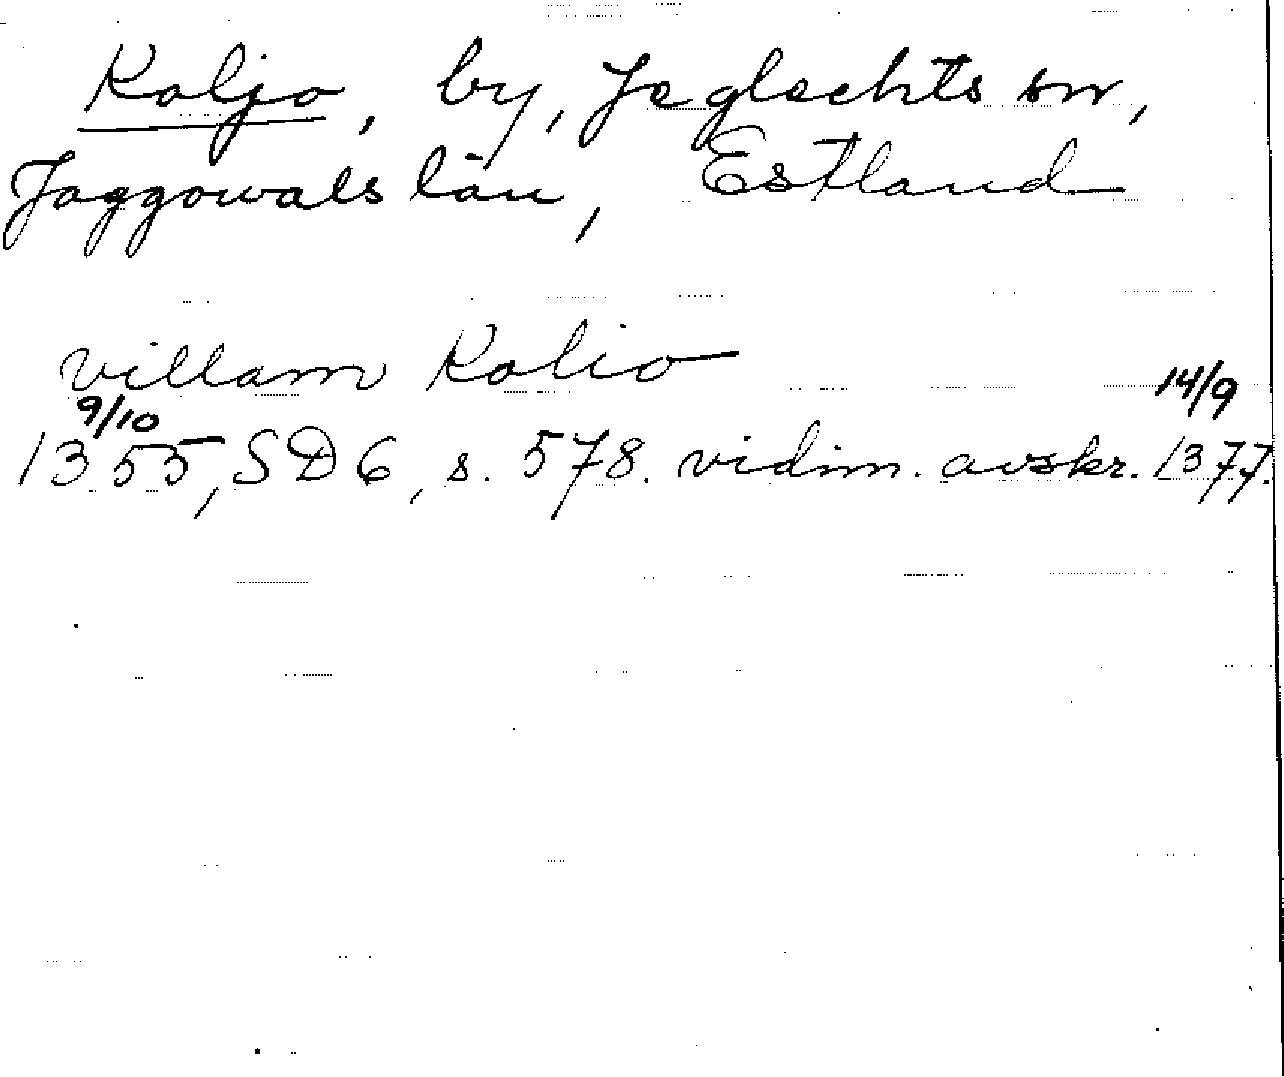 Koljo, by, Jeglechts sn,
Jaggowals län, Estland
villam Kolio
9/10 14/9
1355, SD 6, s. 578. vidim. avskr. 1377.